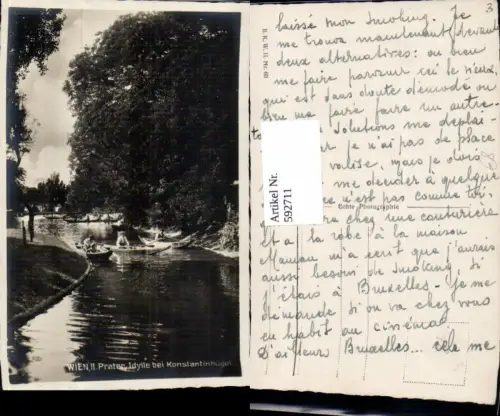 WIEN, II. Prater, Idylle bei Konstantinhügel
3
B. K. W. II. Nr. 60
laissé mon smoking. Je
me trouve maintenant devant
deux alternatives: ou bien
me faire parvenir ici le vieux,
qui est sans doute démodé ou
bien me faire faire un autre.
solutions me déplai-
je n'ai pas de place
valise, mais je dois
me décider à quelque
ce n'est pas comme toi,
chez une couturière
et a la robe à la maison
Maman m'a écrit que j'aurais
aussi besoin de smoking, si
j'étais à Bruxelles - Je me
demande si on va chez vous
en habit au cinéma
D'ailleurs Bruxelles... cela me
Echte Photographie
Artikel Nr.
592711